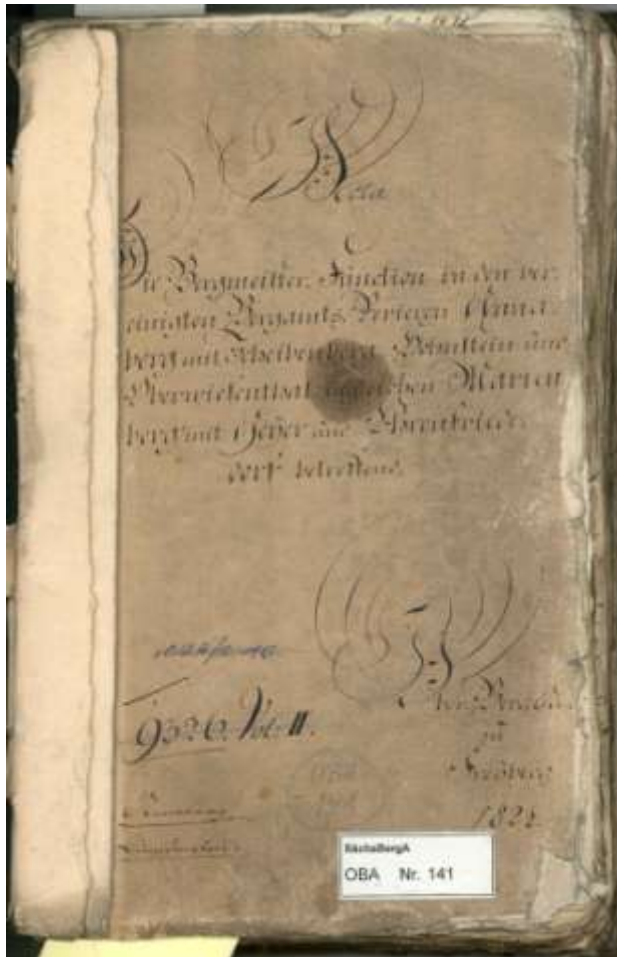 Acta
Die Bergmeister-Function in den ver-
einigten Bergamts-Revieren Anna-
berg mit Scheibenberg, Hohnstein und
Oberwiesenthal, ingleichen Marien
berg mit Geyer und Ehrenfrieders
dorf betreffend.
9526. Vol. II.
Ober-Bergamt
zu
Freyberg
182
SächsBergA
OBA Nr. 141